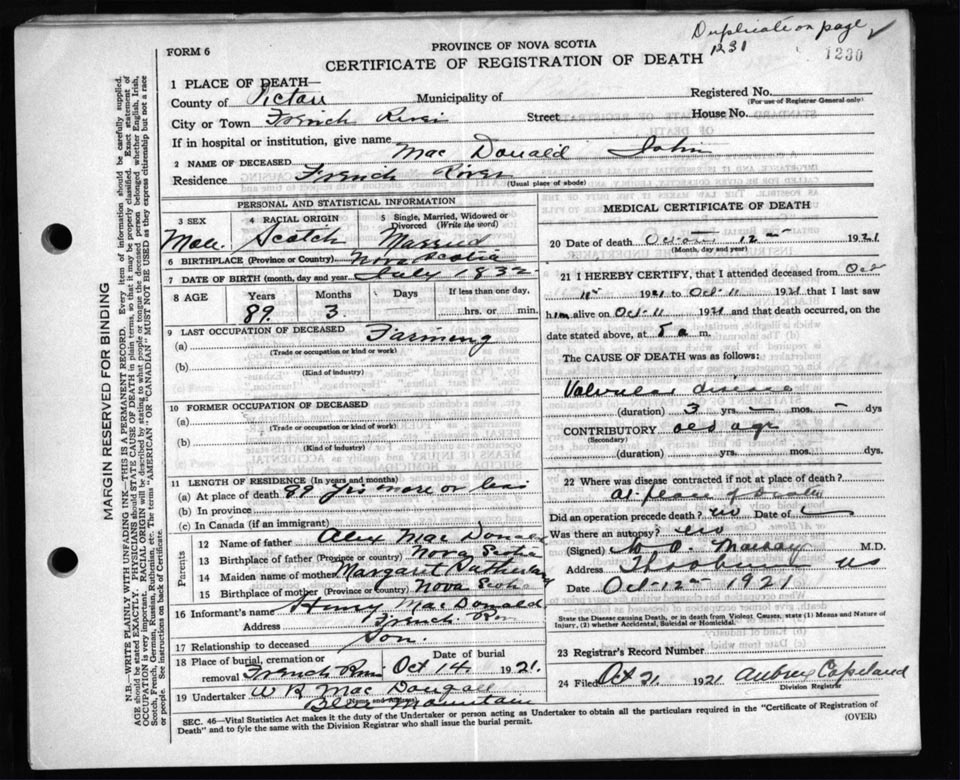 Duplicate on page
1231
1230
FORM 6
PROVINCE OF NOVA SCOTIA
CERTIFICATE OF REGISTRATION OF DEATH
1 PLACE OF DEATH—
County of Pictou Municipality of Registered No.
(For use of Registrar General only)
City or Town French River Street House No.
If in hospital or institution, give name
2 NAME OF DECEASED Mac Donald John
Residence French River
(Usual place of abode)
PERSONAL AND STATISTICAL INFORMATION
3 SEX 4 RACIAL ORIGIN 5 Single, Married, Widowed or Divorced (Write the word)
Male Scotch Married
6 BIRTHPLACE (Province or Country) Nova Scotia
7 DATE OF BIRTH (month, day and year) July 1832
8 AGE Years Months Days If less than one day,
89 3 hrs. or min.
9 LAST OCCUPATION OF DECEASED
(a) Farming
(Trade or occupation or kind of work)
(b)
(Kind of industry)
10 FORMER OCCUPATION OF DECEASED
(a)
(Trade or occupation or kind of work)
(b)
(Kind of industry)
11 LENGTH OF RESIDENCE (In years and months)
(a) At place of death 89 yrs more or less
(b) In province
(c) In Canada (if an immigrant)
Parents
12 Name of father Alex Mac Donald
13 Birthplace of father (Province or country) Nova Scotia
14 Maiden name of mother Margaret Sutherland
15 Birthplace of mother (Province or country) Nova Scotia
16 Informant's name Henry MacDonald
Address French River
17 Relationship to deceased Son.
18 Place of burial, cremation or removal Date of burial
French River Oct 14 1921.
19 Undertaker W R Mac Dougall
Name and
Blue Mountain
MEDICAL CERTIFICATE OF DEATH
20 Date of death Oct 12 1921
(Month, day and year)
21 I HEREBY CERTIFY, that I attended deceased from Oct
11 1921 to Oct 11 1921 that I last saw
him alive on Oct 11 1921 and that death occurred, on the
date stated above, at 5 a m.
The CAUSE OF DEATH was as follows:
Valvular disease
(duration) 3 yrs. — mos. — dys
CONTRIBUTORY old age
(Secondary)
(duration) yrs. mos. dys.
22 Where was disease contracted if not at place of death?
at place of death
Did an operation precede death? no Date of —
Was there an autopsy? no
(Signed) M.D.
Address Thorburn NS
Date Oct 12 1921
State the Disease causing Death, or in death from Violent Causes, state (1) Means and Nature of
Injury, (2) whether Accidental, Suicidal or Homicidal.
23 Registrar's Record Number
24 Filed Oct 21 1921 Aubrey Copeland
Division Registrar
SEC. 46—Vital Statistics Act makes it the duty of the Undertaker or person acting as Undertaker to obtain all the particulars required in the "Certificate of Registration of
Death" and to fyle the same with the Division Registrar who shall issue the burial permit.
(OVER)
MARGIN RESERVED FOR BINDING
N.B.—WRITE PLAINLY WITH UNFADING INK—THIS IS A PERMANENT RECORD. Every item of information should be carefully supplied.
AGE should be stated EXACTLY. PHYSICIANS should STATE CAUSE OF DEATH in plain terms, so that it may be properly classified. Exact statement of
OCCUPATION is very important. RACIAL ORIGIN will be described by stating to what people or tongue the deceased person belonged whether English, Irish,
Scotch, French, German, Russian, Ruthenian, etc. The terms "AMERICAN" OR "CANADIAN" MUST NOT BE USED as they express citizenship but not a race
or people. See instructions on back of Certificate.